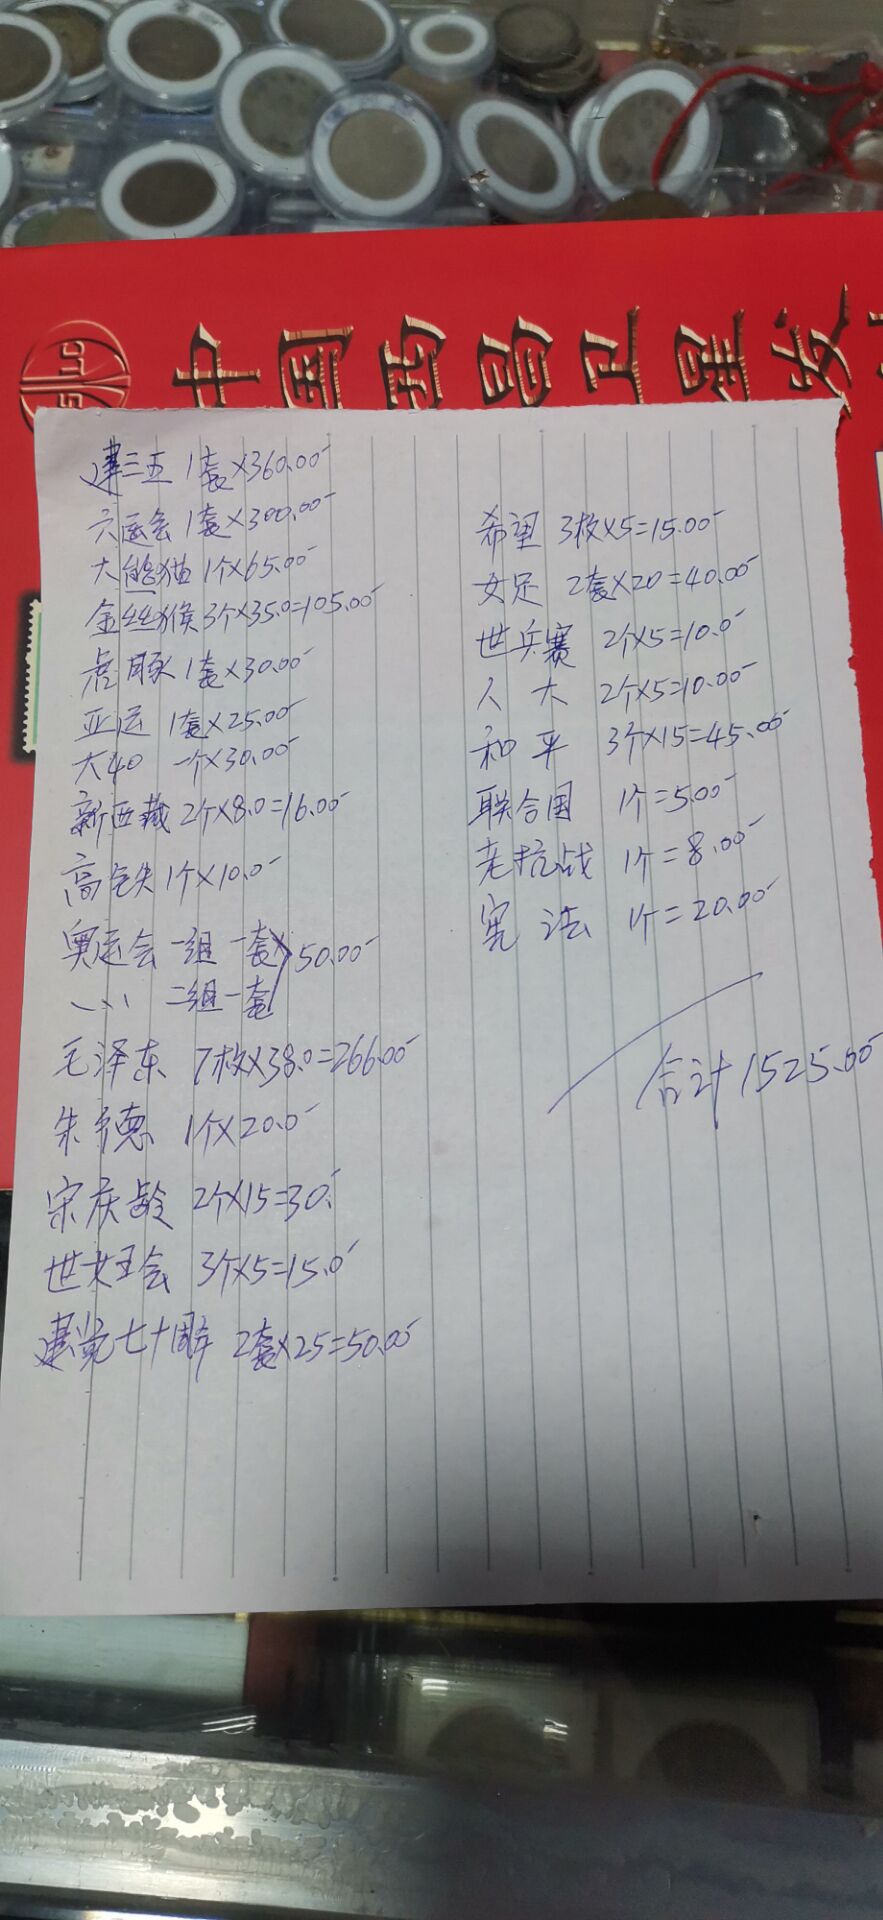 中国西昌卫星发
建三五 1套×360.00
六运会 1套×300.00
大熊猫 1个×65.00
金丝猴 3个×35.0=105.00
虎豚 1套×30.00
亚运 1套×25.00
大40 一个×30.00
新西藏 2个×8.0=16.00
高铁 1个×10.0
奥运会 一组 一套
二组 一套 50.00
毛泽东 7枚×38.0=266.00
朱德 1个×20.0
宋庆龄 2个×15=30.
世女王会 3个×5=15.0
建党七十周年 2套×25=50.00
希望 3枚×5=15.00
女足 2套×20=40.00
世乒赛 2个×5=10.0
人大 2个×5=10.00
和平 3个×15=45.00
联合国 1个=5.00
老抗战 1个=8.00
宪法 1个=20.00
合计 1525.00